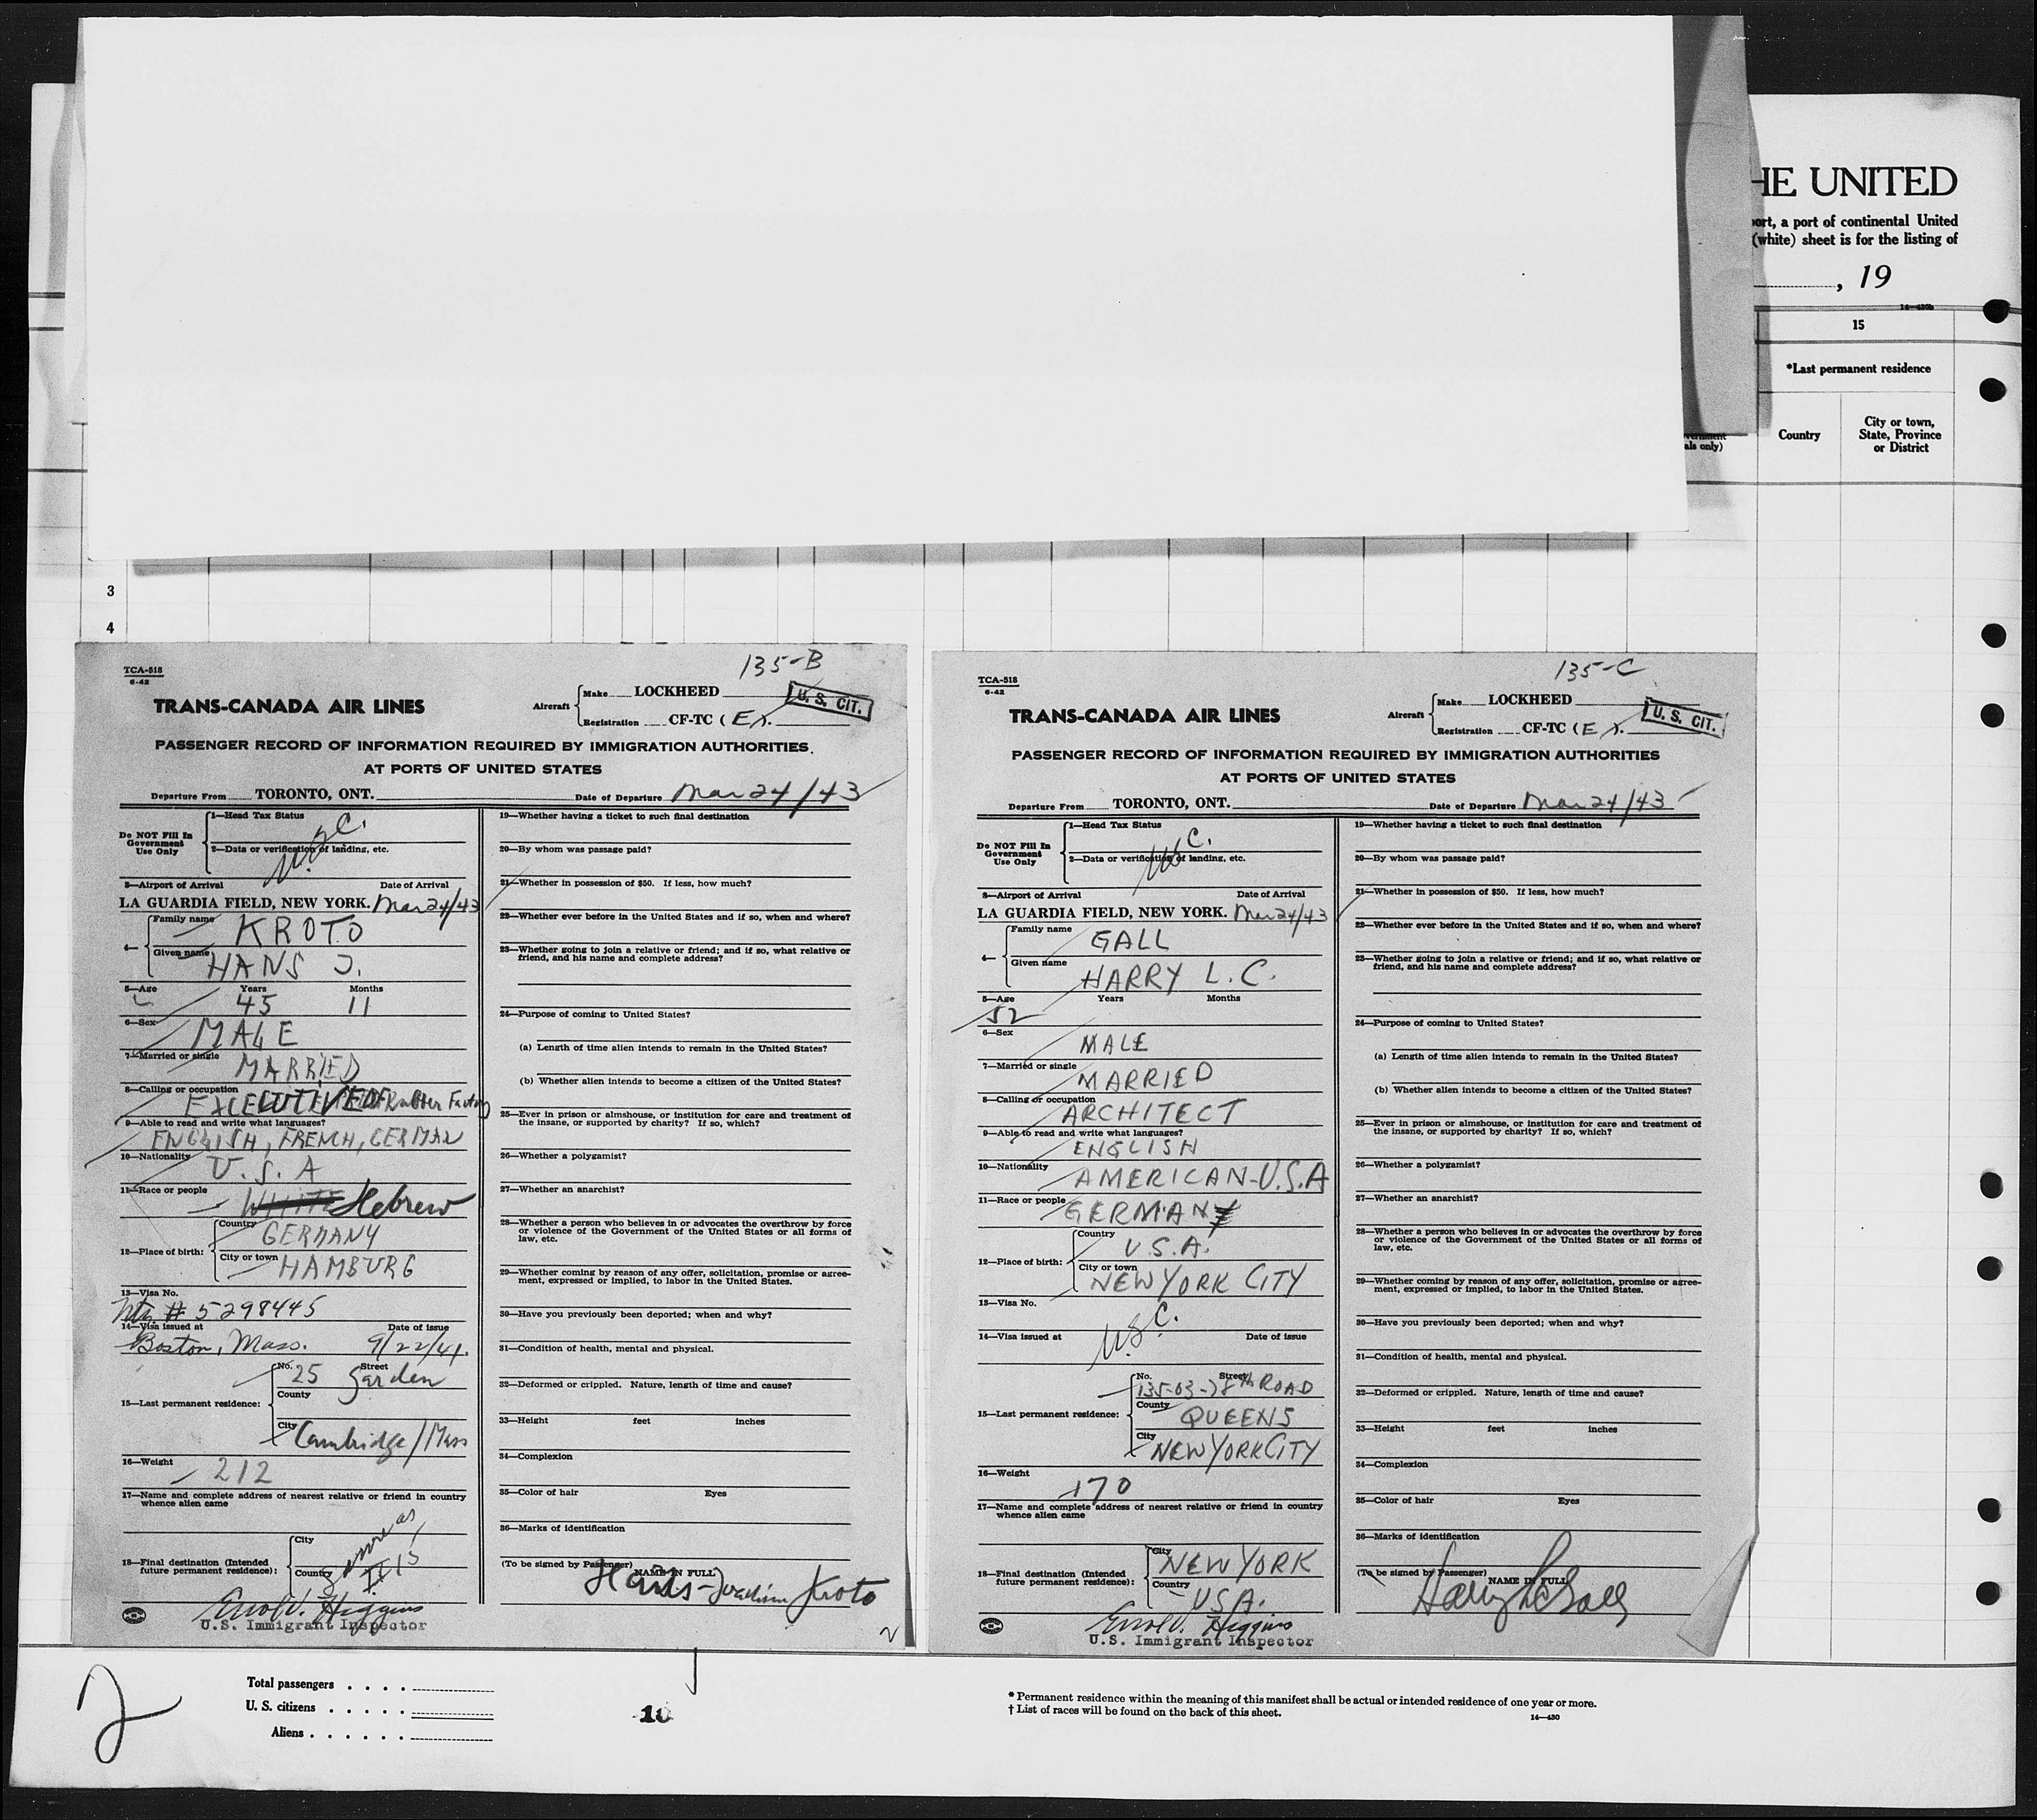 HE UNITED
ort, a port of continental United
(white) sheet is for the listing of
, 19
15
*Last permanent residence
als only)
Country
City or town,
State, Province
or District
3
4
135-B
TCA-518
6-42
TRANS-CANADA AIR LINES
Aircraft
Make LOCKHEED
Registration CF-TC (E).
U. S. CIT.
PASSENGER RECORD OF INFORMATION REQUIRED BY IMMIGRATION AUTHORITIES
AT PORTS OF UNITED STATES
Departure From TORONTO, ONT. Date of Departure Mar 24/43
Do NOT Fill In
Government
Use Only
1—Head Tax Status
U.S.C.
2—Data or verification of landing, etc.
3—Airport of Arrival Date of Arrival
LA GUARDIA FIELD, NEW YORK. Mar 24/43
4—
Family name KROTO
Given name HANS J.
5—Age Years Months
45 11
6—Sex
MALE
7—Married or single
MARRIED
8—Calling or occupation
EXECUTIVE Rubber Factory
9—Able to read and write what languages?
ENGLISH, FRENCH, GERMAN
10—Nationality
U.S.A
11—Race or people
WHITE Hebrew
12—Place of birth:
Country
GERMANY
City or town
HAMBURG
13—Visa No.
Ntz. # 5298445
14—Visa issued at Date of issue
Boston, Mass. 9/22/41.
15—Last permanent residence:
No. Street
25 Garden
County
City
Cambridge/Mass
16—Weight
212
17—Name and complete address of nearest relative or friend in country
whence alien came
18—Final destination (Intended
future permanent residence):
City
Country
Same as
# 15
Errol V. Higgins
U.S. Immigrant Inspector
19—Whether having a ticket to such final destination
20—By whom was passage paid?
21—Whether in possession of $50. If less, how much?
22—Whether ever before in the United States and if so, when and where?
23—Whether going to join a relative or friend; and if so, what relative or
friend, and his name and complete address?
24—Purpose of coming to United States?
(a) Length of time alien intends to remain in the United States?
(b) Whether alien intends to become a citizen of the United States?
25—Ever in prison or almshouse, or institution for care and treatment of
the insane, or supported by charity? If so, which?
26—Whether a polygamist?
27—Whether an anarchist?
28—Whether a person who believes in or advocates the overthrow by force
or violence of the Government of the United States or all forms of
law, etc.
29—Whether coming by reason of any offer, solicitation, promise or agree-
ment, expressed or implied, to labor in the United States.
30—Have you previously been deported; when and why?
31—Condition of health, mental and physical.
32—Deformed or crippled. Nature, length of time and cause?
33—Height feet inches
34—Complexion
35—Color of hair Eyes
36—Marks of identification
(To be signed by Passenger)
NAME IN FULL
Hans-Joachim Kroto
135-C
TCA-518
6-42
TRANS-CANADA AIR LINES
Aircraft
Make LOCKHEED
Registration CF-TC (E).
U. S. CIT.
PASSENGER RECORD OF INFORMATION REQUIRED BY IMMIGRATION AUTHORITIES
AT PORTS OF UNITED STATES
Departure From TORONTO, ONT. Date of Departure Mar 24/43
Do NOT Fill In
Government
Use Only
1—Head Tax Status
2—Data or verification of landing, etc.
3—Airport of Arrival Date of Arrival
LA GUARDIA FIELD, NEW YORK. Mar 24/43
4—
Family name
GALL
Given name
HARRY L.C.
5—Age Years Months
52
6—Sex
MALE
7—Married or single
MARRIED
8—Calling or occupation
ARCHITECT
9—Able to read and write what languages?
ENGLISH
10—Nationality
AMERICAN-U.S.A
11—Race or people
GERMAN
12—Place of birth:
Country
U.S.A.
City or town
NEW YORK CITY
13—Visa No.
U.S.C.
14—Visa issued at Date of issue
15—Last permanent residence:
No. Street
135-03-78th ROAD
County
QUEENS
City
NEW YORK CITY
16—Weight
170
17—Name and complete address of nearest relative or friend in country
whence alien came
18—Final destination (Intended
future permanent residence):
City
NEW YORK
Country
USA.
Errol V. Higgins
U.S. Immigrant Inspector
19—Whether having a ticket to such final destination
20—By whom was passage paid?
21—Whether in possession of $50. If less, how much?
22—Whether ever before in the United States and if so, when and where?
23—Whether going to join a relative or friend; and if so, what relative or
friend, and his name and complete address?
24—Purpose of coming to United States?
(a) Length of time alien intends to remain in the United States?
(b) Whether alien intends to become a citizen of the United States?
25—Ever in prison or almshouse, or institution for care and treatment of
the insane, or supported by charity? If so, which?
26—Whether a polygamist?
27—Whether an anarchist?
28—Whether a person who believes in or advocates the overthrow by force
or violence of the Government of the United States or all forms of
law, etc.
29—Whether coming by reason of any offer, solicitation, promise or agree-
ment, expressed or implied, to labor in the United States.
30—Have you previously been deported; when and why?
31—Condition of health, mental and physical.
32—Deformed or crippled. Nature, length of time and cause?
33—Height feet inches
34—Complexion
35—Color of hair Eyes
36—Marks of identification
(To be signed by Passenger)
NAME IN FULL
Harry L C Gall
2
Total passengers
U. S. citizens
Aliens
10
* Permanent residence within the meaning of this manifest shall be actual or intended residence of one year or more.
† List of races will be found on the back of this sheet.
14—430